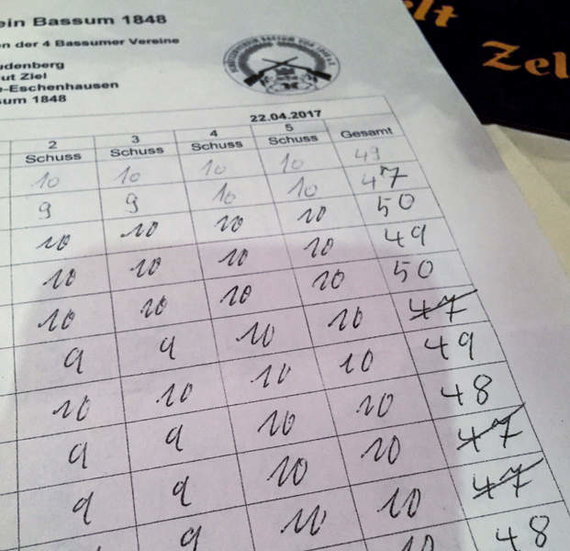 ein Bassum 1848
en der 4 Bassumer Vereine
udenberg
ut Ziel
e-Eschenhausen
sum 1848
elt
Zel
22.04.2017
2 3 4 5 Gesamt
Schuss Schuss Schuss Schuss
10 10 10 10 49
9 9 10 10 47
10 10 10 10 50
10 10 10 10 49
10 10 10 10 50
9 9 10 10 47
10 10 10 10 49
9 9 10 10 48
9 9 10 10 47
9 10 10 47
10 48